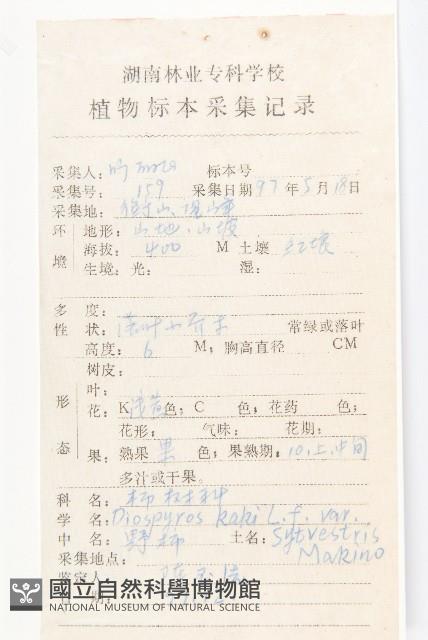 湖南林业专科学校
植物标本采集记录
采集人: 标本号
采集号: 159 采集日期 97 年 5 月 18 日
采集地: 衡山、
环 地形: 山地、山坡
海拔: 400 M 土壤 红壤
境 生境: 光: 湿:
多 度:
性 状: 落叶小乔木 常绿或落叶
高度: 6 M, 胸高直径 CM
树皮:
形 叶:
花: K 浅黄色; C 色; 花药 色;
花形: 气味: 花期:
态 果: 熟果 果 色; 果熟期: 10.上.中旬
多汁或干果。
科 名: 柿树科
学 名: Diospyros kaki L.f. var.
中 名: 野柿 土名: Sytvestris
采集地点: Makino
鉴定人
國立自然科學博物館
NATIONAL MUSEUM OF NATURAL SCIENCE